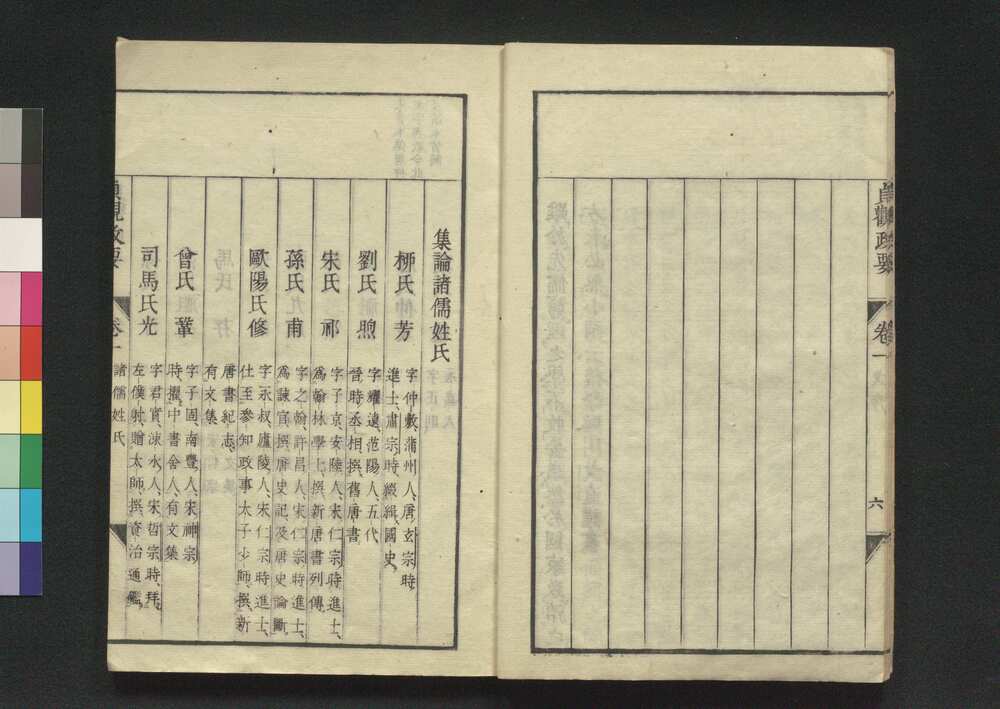 貞觀政要
卷一
六
集論諸儒姓氏
栁氏芳
字仲敷、蒲州人、唐玄宗時、
進士、肅宗時、綴緝國史、
劉氏昫
字耀遠、范陽人、五代
晉時丞相、撰舊唐書、
宋氏祁
字子京、安陸人、宋仁宗時進士、
爲翰林學士、撰新唐書列傳、
孫氏甫
字之翰、許昌人、宋仁宗時進士、
爲諫官、撰唐史記及唐史論斷、
歐陽氏修
字永叔、廬陵人、宋仁宗時進士、
仕至參知政事太子少師、撰新
唐書紀志、
有文集
曾氏鞏
字子固、南豐人、宋神宗
時擢中書舍人、有文集
司馬氏光
字君實、涑水人、宋哲宗時、拜
左僕射、贈太師、撰資治通鑑、
貞觀政要
卷一
諸儒姓氏